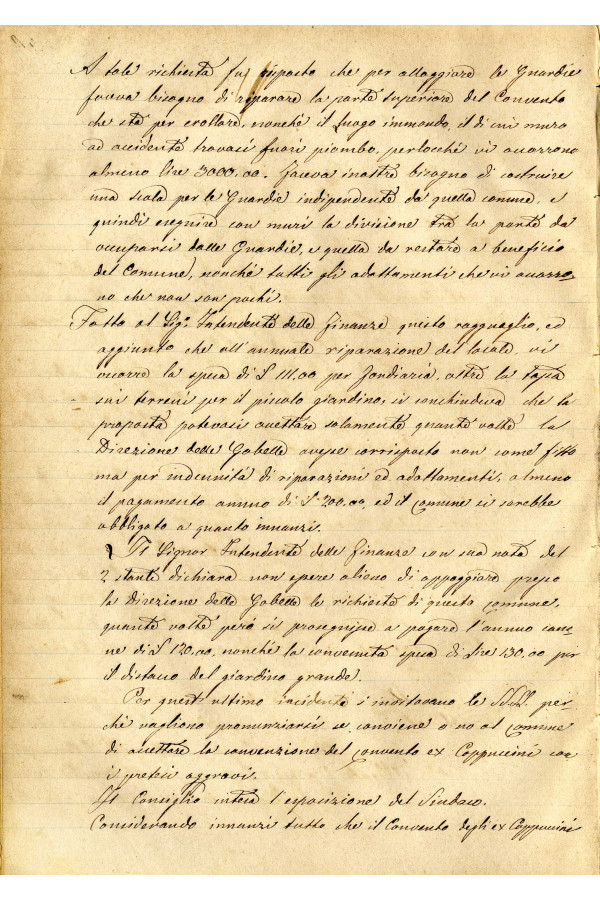 A tale richiesta fu risposto che per alloggiare le Guardie
faceva bisogno di riparare la parte superiore del Convento
che sta per crollare, nonchè il luogo immondo, il di cui muro
ad accidente trovasi fuori piombo, perlocchè vi occorrono
almeno lire 3000,00. Faceva inoltre bisogno di costruire
una scala per le Guardie indipendente da quella comune, e
quindi eseguire con muri la divisione tra la parte da
occuparsi dalle Guardie, e quella da restare a beneficio
del Comune, nonchè tutti gli adattamenti che vi occorro=
no che non son pochi.
Fatto al Sig. Intendente delle finanze questo ragguaglio, ed
aggiunto che all'annuale riparazione del locale, vi
occorre la spesa di £ 111.00 per fondiaria, oltre la tassa
sui terreni per il piccolo giardino; si conchiudeva che la
proposta potevasi accettare solamente quante volte la
Direzione delle Gabelle avesse corrisposto non come fitto
ma per indennità di riparazioni ed adattamenti, almeno
il pagamento annuo di £ 200.00, ed il Comune si sarebbe
obbligato a quanto innanzi.
Il Signor Intendente delle finanze con sua nota del
2 stante dichiara non essere alieno di appoggiare presso
la Direzione delle Gabelle le richieste di questo comune,
quante volte però si proseguisse a pagare l'annuo cano=
ne di £ 120.00, nonchè la convenuta spesa di lire 130,00 per
il distacco del giardino grande.
Per quest'ultimo incidente s'invitavano le SS.LL. per
chè vogliono pronunziarsi se conviene o no al Comune
di accettare la convenzione del convento ex Cappuccini con
i pretesi aggravi.
Il Consiglio intesa l'esposizione del Sindaco.
Considerando innanzi tutto che il Convento degli ex Cappuccini